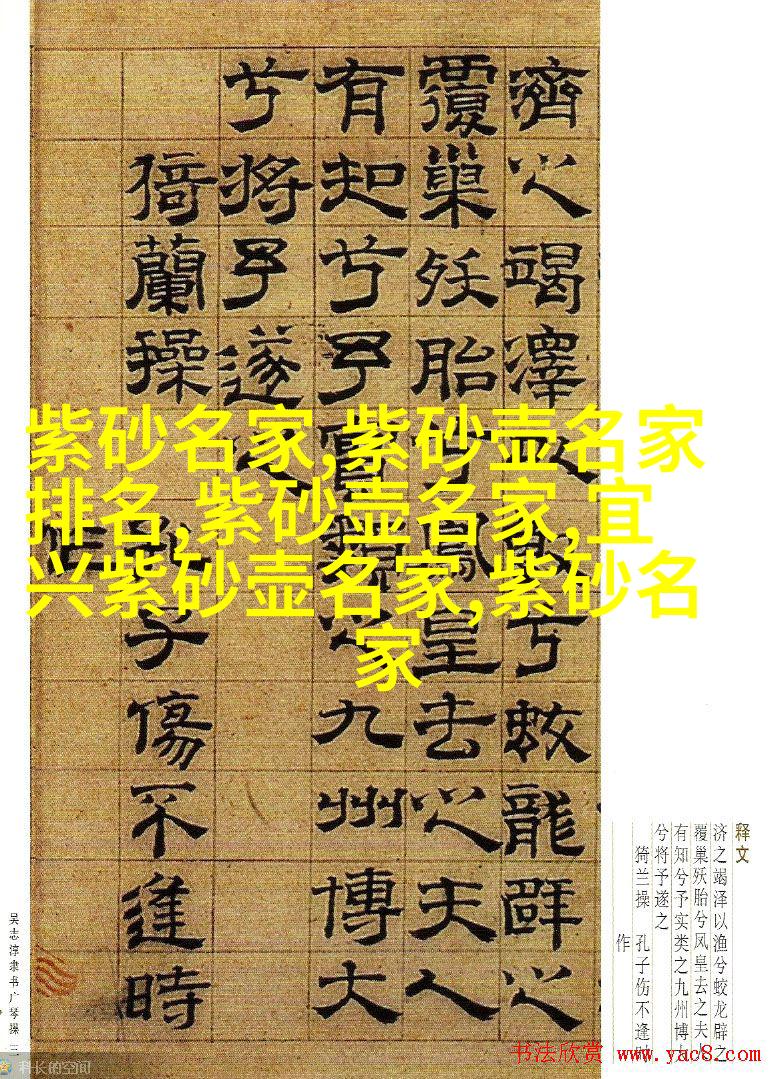 濟之竭澤以漁兮蛟龍辟之
覆巢殀胎兮鳳皇去之夫人
有知兮予實類之九州博大
兮將予遂之
猗蘭操 孔子傷不逢時
作
紫砂名家,紫砂壶名家
排名,紫砂壶名家,宜
兴紫砂壶名家,紫砂名
家
释文
济之竭泽以渔兮蛟龙辟之
覆巢殀胎兮凤皇去之夫人
有知兮予实类之九州博大
兮将予遂之
猗兰操 孔子伤不逢时
作
吴志淳隶书广琴操 三
书法欣赏 www.yac8.com
科长的空间